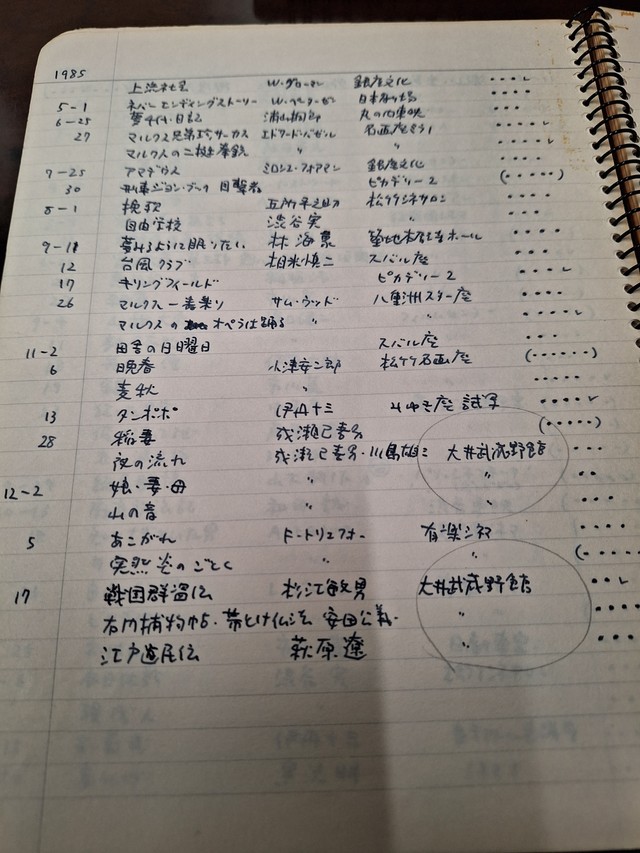 1985
上流社会 W・グローマン 銀座文化 ・・・・
5-1 ネバーエンディングストーリー W・ペーターゼン 日本劇場 ・・・
6-25 夢千代日記 浦山桐郎 丸の内東映 ・・・・
27 マルクス兄弟珍サーカス エドワード・バゼル 名画座ミラノ ・・・・
マルクスの二挺拳銃 〃 〃 ・・・・
7-25 アマデウス ミロシュ・フォアマン 銀座文化 ・・・・
30 刑事ジョン・ブック 目撃者 ピカデリー2 (・・・・・)
8-1 挽歌 五所平之助 松竹シネサロン ・・・
自由学校 渋谷実 ・・・・
9-11 夢みるように眠りたい 林海象 築地本願寺ホール ・・・・
12 台風クラブ 相米慎二 スバル座 ・・・・
17 キリングフィールド ピカデリー2 ・・・・
26 マルクス一番乗り サム・ウッド 八重洲スター座 ・・・・
マルクスのオペラは踊る 〃 ・・・・・
11-2 田舎の日曜日 スバル座 ・・・・
6 晩春 小津安二郎 松竹名画座 (・・・・・・)
麦秋 〃 〃 ・・・・・
13 タンポポ 伊丹十三 みゆき座 試写 ・・・・
28 稲妻 成瀬巳喜男 (・・・・・)
夜の流れ 成瀬巳喜男・川島雄三 大井武蔵野館 ・・・
12-2 娘・妻・母 〃 〃 ・・
山の音 〃 〃 ・・・・
5 あこがれ F・トリュフォー 有楽シネマ ・・・・
突然炎のごとく 〃 (・・・・
17 戦国群盗伝 杉江敏男 大井武蔵野館 ・・
右門捕物帖・帯とけ仏法 安田公義 〃 ・・・・
江戸遊民伝 萩原遼 〃 ・・・